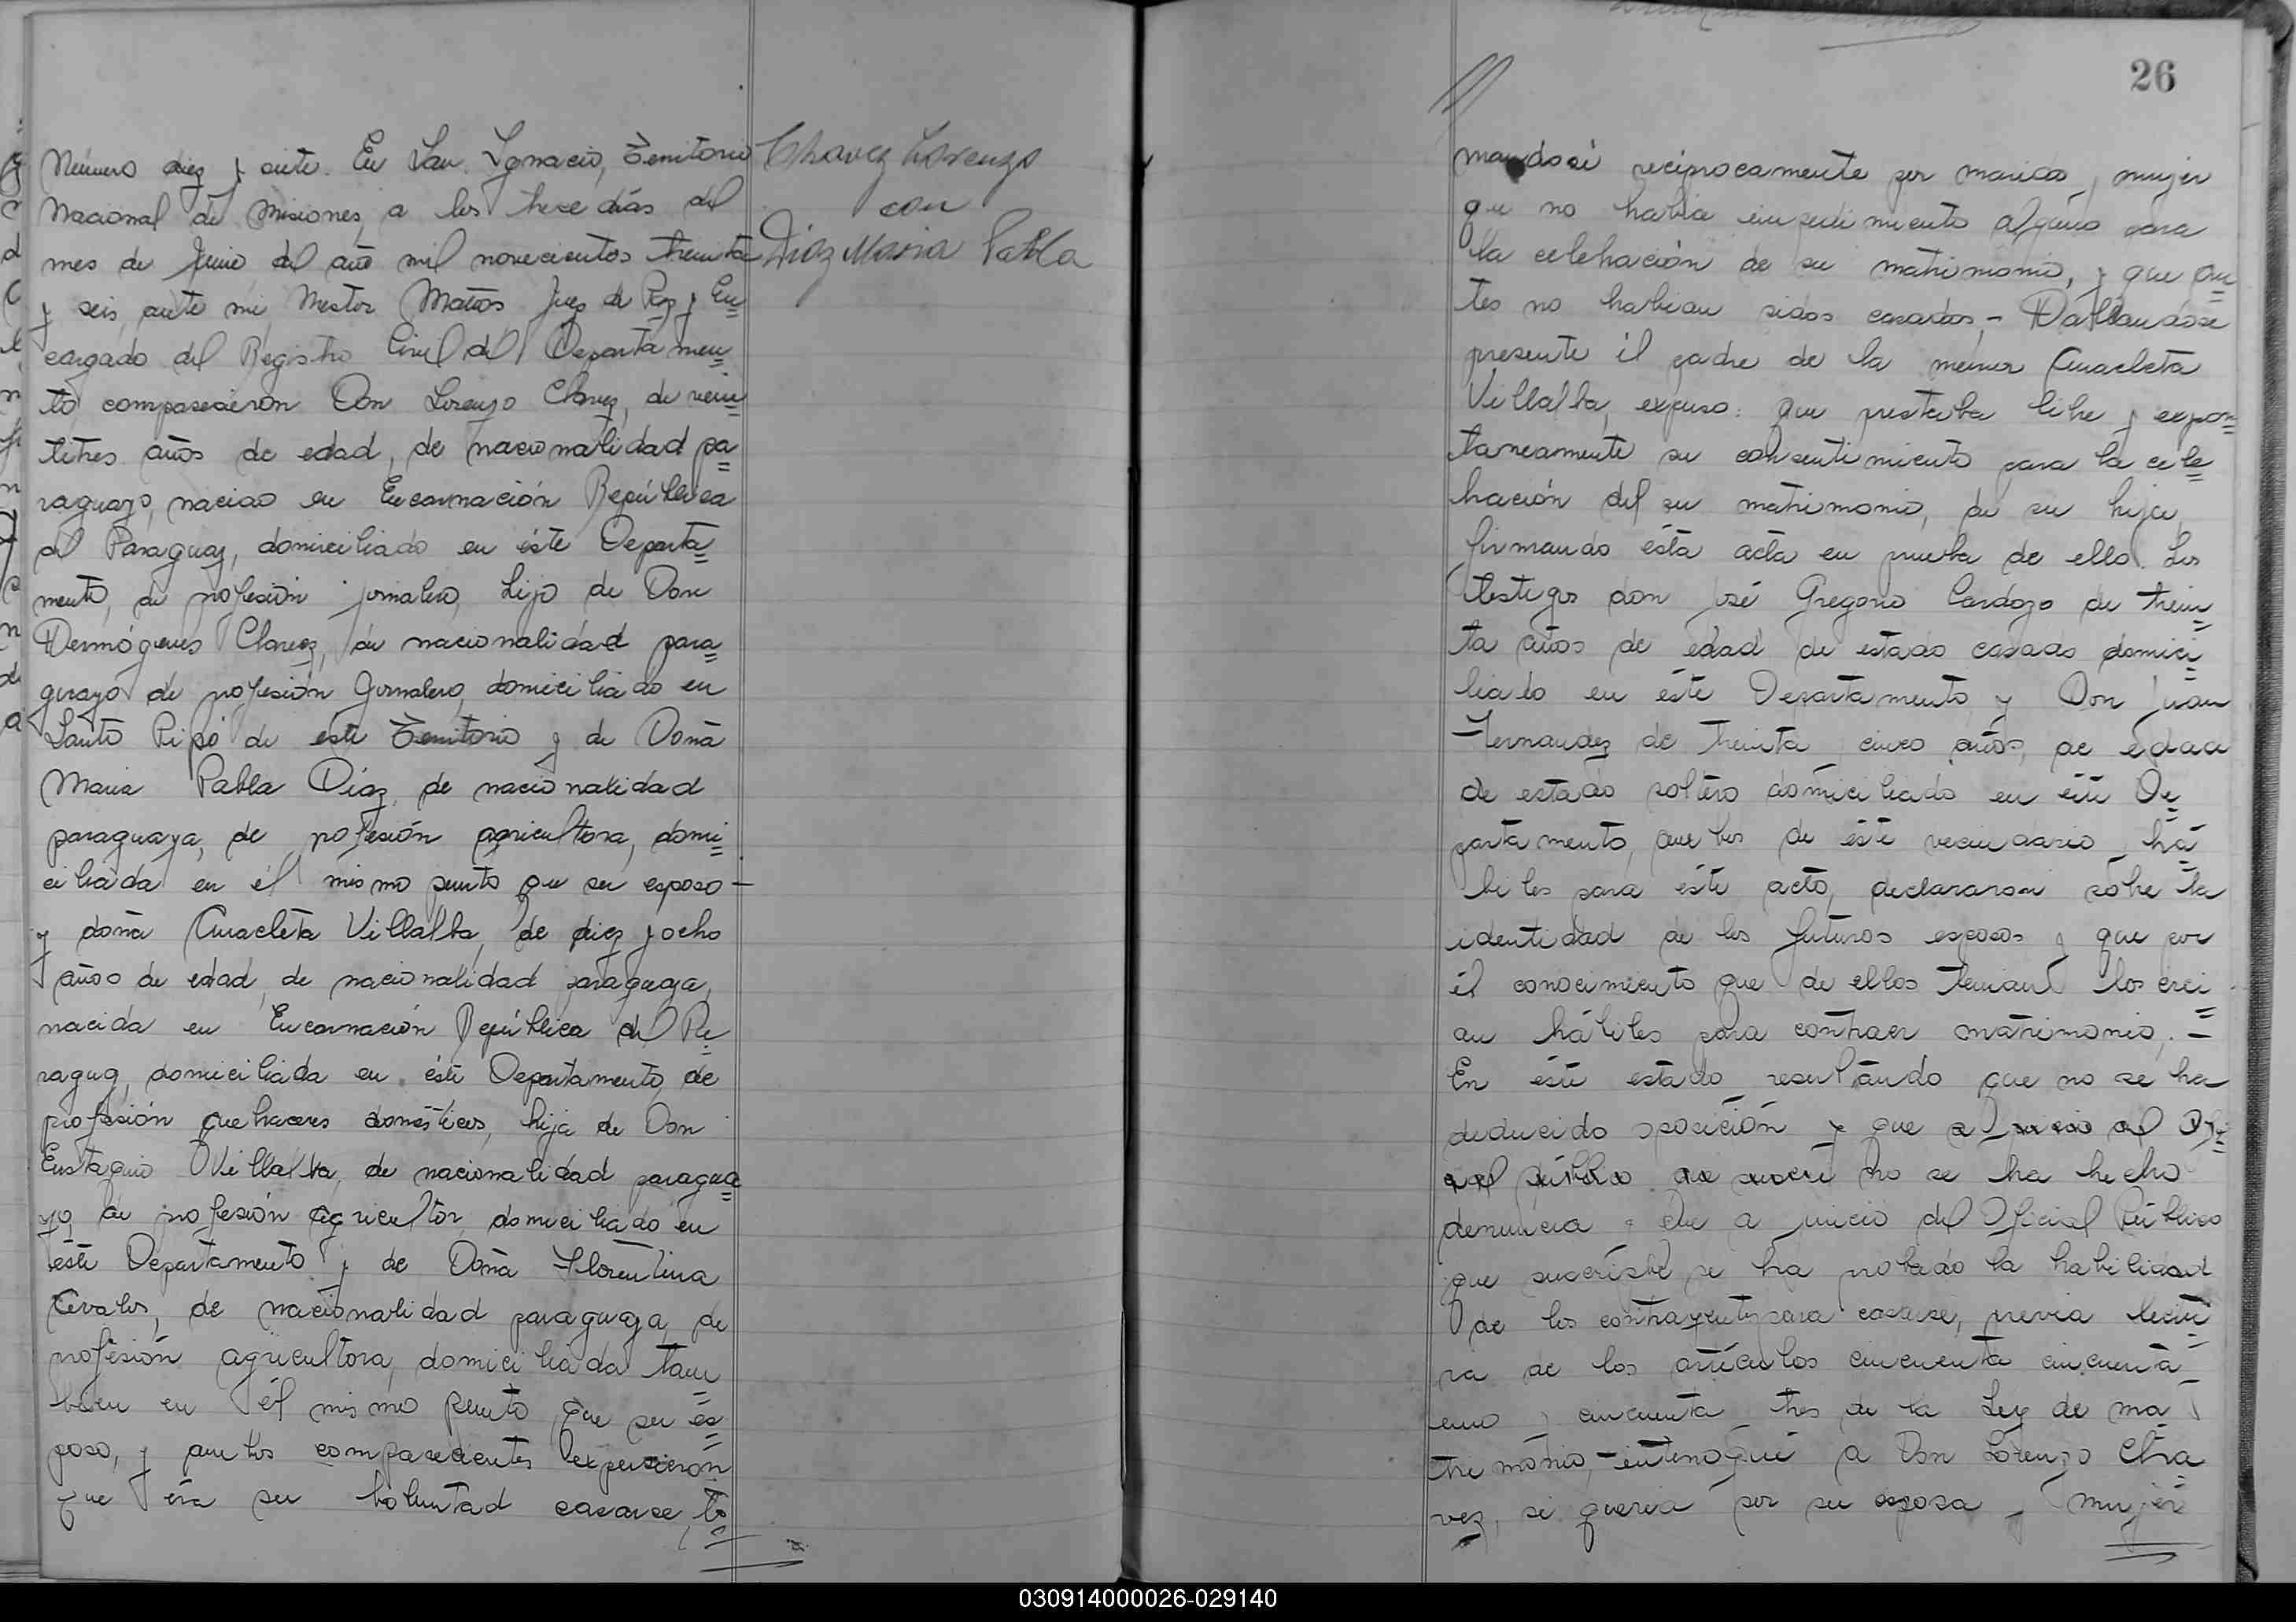 Número diez y siete. En San Ignacio, Territorio
Nacional de Misiones, a los trece días del
mes de Junio del año mil novecientos treinta
y seis, ante mi, Nestor Matos Juez de Paz y En=
cargado del Registro Civil del Departamen=
to, comparecieron Don Lorenzo Chavez, de vein=
titres años de edad, de nacionalidad pa=
raguayo, nacido en Encarnación República
del Paraguay, domiciliado en éste Departa=
mento, de profesión jornalero, hijo de Don
Hermógenes Chavez, de nacionalidad para=
guayo de profesión Jornalero, domiciliado en
Santo Pipó de este Territorio y de Doña
Maria Pabla Díaz, de nacionalidad
paraguaya, de profesión agricultora, domi=
ciliada en él mismo punto que su esposo -
y doña Anacleta Villalba, de diez y ocho
años de edad, de nacionalidad paraguaya,
nacida en Encarnación República del Pa=
raguay, domiciliada en éste Departamento, de
profesión quehaceres domésticos, hija de Don
Eustaquio Villalba, de nacionalidad paragua=
yo, de profesión agricultor, domiciliado en
éste Departamento y de Doña Florentina
Cevalos, de nacionalidad paraguaya, de
profesión agricultora, domiciliada tam=
bien en él mismo punto que su es=
poso, y ambos comparecientes expusieron
que éra su boluntad casarse, to=
Chavez Lorenzo
con
Díaz Maria Pabla
26
mandosé reciprocamente por marido y mujer
que no habia impedimento alguno para
la celebración de su matrimonio, y que an=
tes no habian sidos casados. - Hallandose
presente él padre de la menor Anacleta
Villalba, expuso: que prestaba libre y expon=
taneamente su consentimiento para la cele=
bración del su matrimonio, de su hija,
firmando ésta acta en prueba de ello. Los
testigos don José Gregorio Cardozo de trein=
ta años de edad de estado casado domici=
liado en éste Departamento y Don Juan
Fernandez de treinta y cinco años, de edad
de estado soltero domiciliado en éste De=
partamento, ambos de éste vecindario y há=
biles para éste acto, declararon sobre la
identidad de los futuros esposos y que por
él conocimiento que de ellos tenian los crei=
an hábiles para contraer matrimonio. -
En éste estado resultando que no se ha
deducido oposición y que a juicio del Ofi=
cial público que suscri no se ha hecho
denuncia y que a juicio del Oficial Público
que suscribe se ha probado la habilidad
de los contrayentes para casarse, previa lectu=
ra de los artículos cincuenta cincuenta
uno y cincuenta y tres de la Ley de ma=
trimónio, - interrogué a Don Lorenzo Cha=
vez, si queria por su esposa y mujer
030914000026-029140